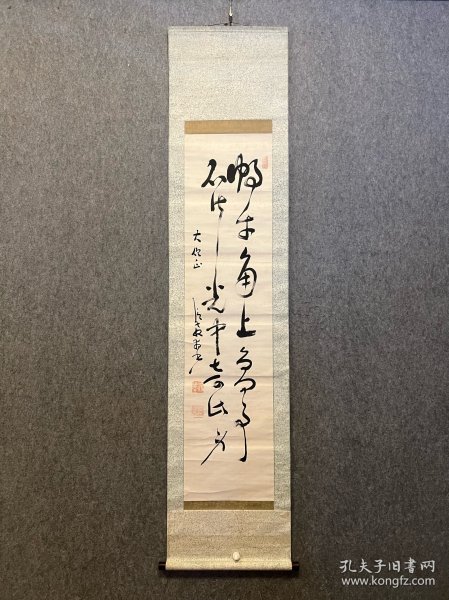 蜗牛角上争何事
石火光中寄此身
大作正
孔夫子旧书网
www.kongfz.com